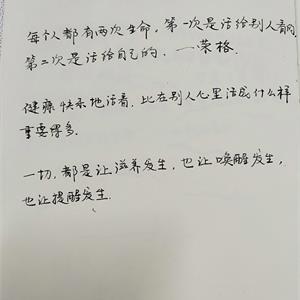 每个人都有两次生命。第一次是活给别人看的,
第二次是活给自己的. ——荣格.
健康快乐地活着, 比在别人心里活成什么样
重要得多.
一切, 都是让滋养发生, 也让唤醒发生,
也让提醒发生.